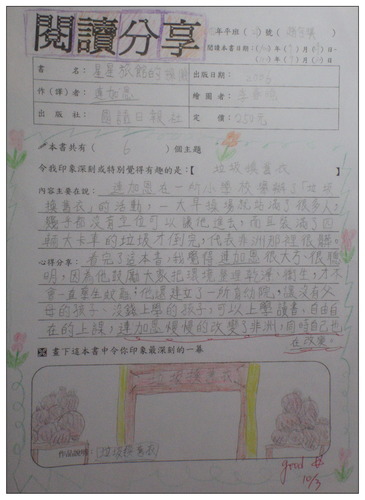 閱讀分享
書 名：星星旅館的
出版日期：2006
作(譯)者：連加恩
繪圖者：
出 版 社：國語日報社
定 價：250元
本書共有( 6 )個主題
令我印象深刻或特別覺得有趣的是：【垃圾換舊衣
內容主要在說：連加恩在一所小學校舉辦了「垃圾
換舊衣」的活動，一大早操場就站滿了很多人，
幾乎都沒有空位可以讓他進去，而且裝滿了四
輛大卡車的垃圾才倒完，代表非洲那裡很髒。
心得分享：看完了這本書，我覺得連加恩很大方、很聰
明，因為他鼓勵大家把環境整理乾淨、衛生，才不
會一直產生
他還建立了一所育幼院，讓沒有父
母的孩子、沒錢上學的孩子，可以上學讀書，自由自
在的上課，連加恩慢慢的改變了非洲，同時自己也
在改變。
畫下這本書中令你印象最深刻的一幕
垃圾換舊衣
作品說明：垃圾換舊衣
good
10/3